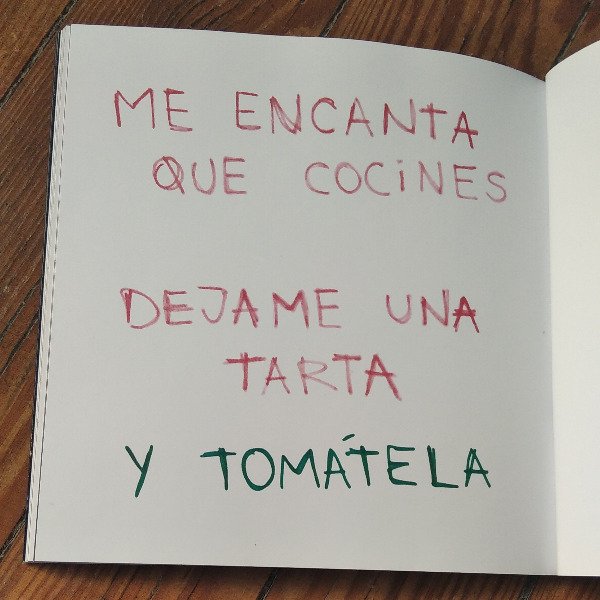 ME ENCANTA
QUE COCiNES
DEJAME UNA
TARTA
Y TOMÁTELA